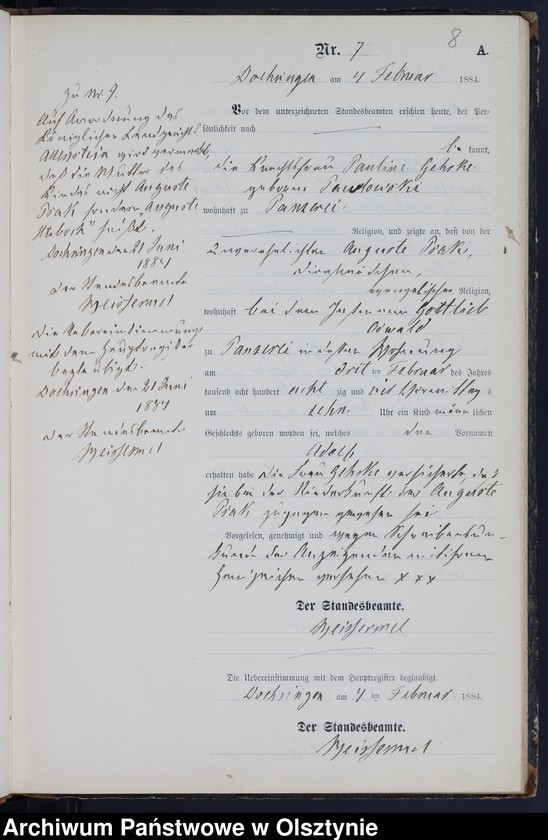 8
Nr. 7 A.
Doehringen am 4 Februar 1884.
Vor dem unterzeichneten Standesbeamten erschien heute, der Per-
sönlichkeit nach
be kannt,
die Knechtsfrau Pauline Gehrke
geborene Pawlowski
wohnhaft zu Panzerei
Religion, und zeigte an, daß von der
unverehelichten Auguste Psak,
Dienstmädchen,
evangelischer Religion,
wohnhaft bei dem Gottlieb
Oswald
zu Panzerei in dessen Wohnung
am drit ten Februar des Jahres
tausend acht hundert acht zig und vier Vormittag s
um zehn Uhr ein Kind männ lichen
Geschlechts geboren worden sei, welches den Vornamen
Adolf
erhalten habe die Frau Gehrke versicherte, daß
sie bei der Niederkunft der Auguste
Psak zugegen gewesen sei
Vorgelesen, genehmigt und wegen Schreibensun-
kunde der Anzeigenden mit ihrem
Handzeichen versehen x x x
Der Standesbeamte.
Weissermel
Die Uebereinstimmung mit dem Hauptregister beglaubigt.
Doehringen am 4 ten Februar 1884.
Der Standesbeamte.
Weissermel
Zu Nr. 7.
Auf Anordnung des
Königlichen Landgerichts
Allenstein wird vermerkt,
daß die Mutter des
Kindes nicht Auguste
Psak sondern "Auguste
" heißt.
Doehringen den 21 Juni
1884
Der Standesbeamte
Weissermel
Die Uebereinstimmung
mit dem Hauptregister
beglaubigt.
Doehringen den 21 Juni
1884
Der Standesbeamte
Weissermel
Archiwum Państwowe w Olsztynie